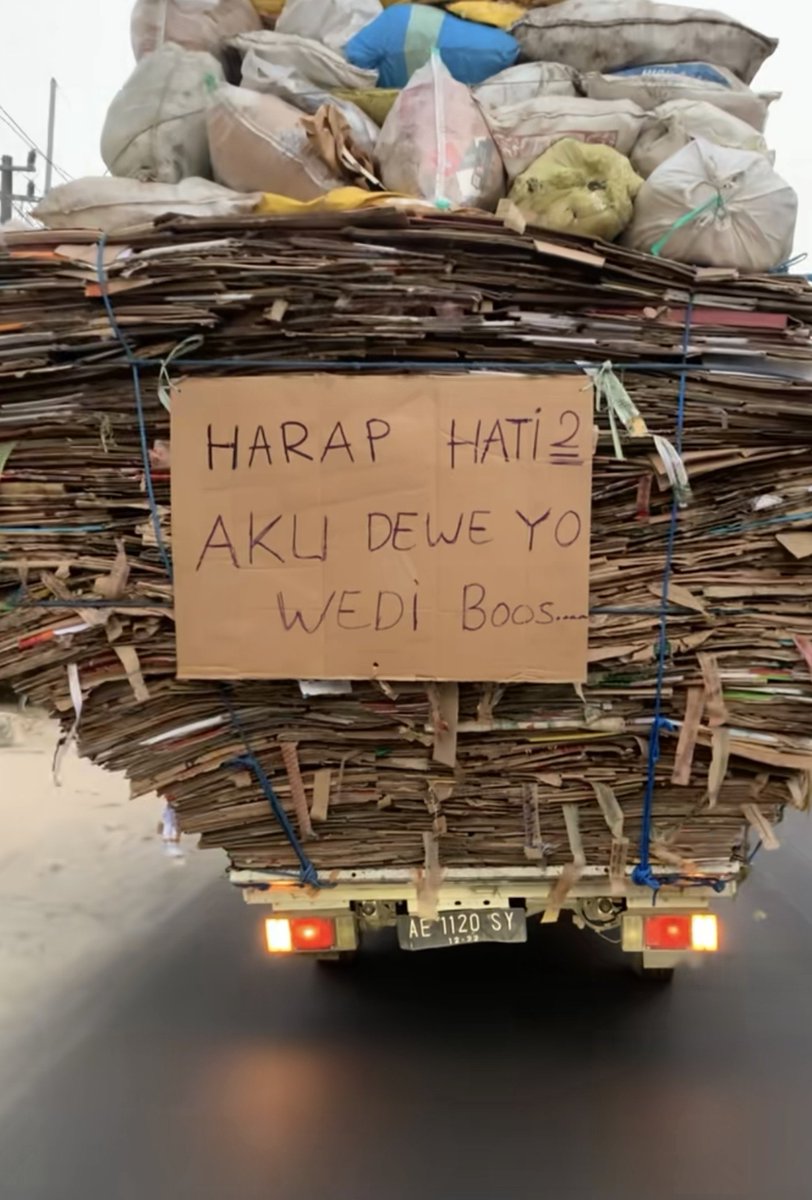 HARAP HATi2
AKU DEWE YO
WEDi BOOS....
AE 1120 SY
12·22